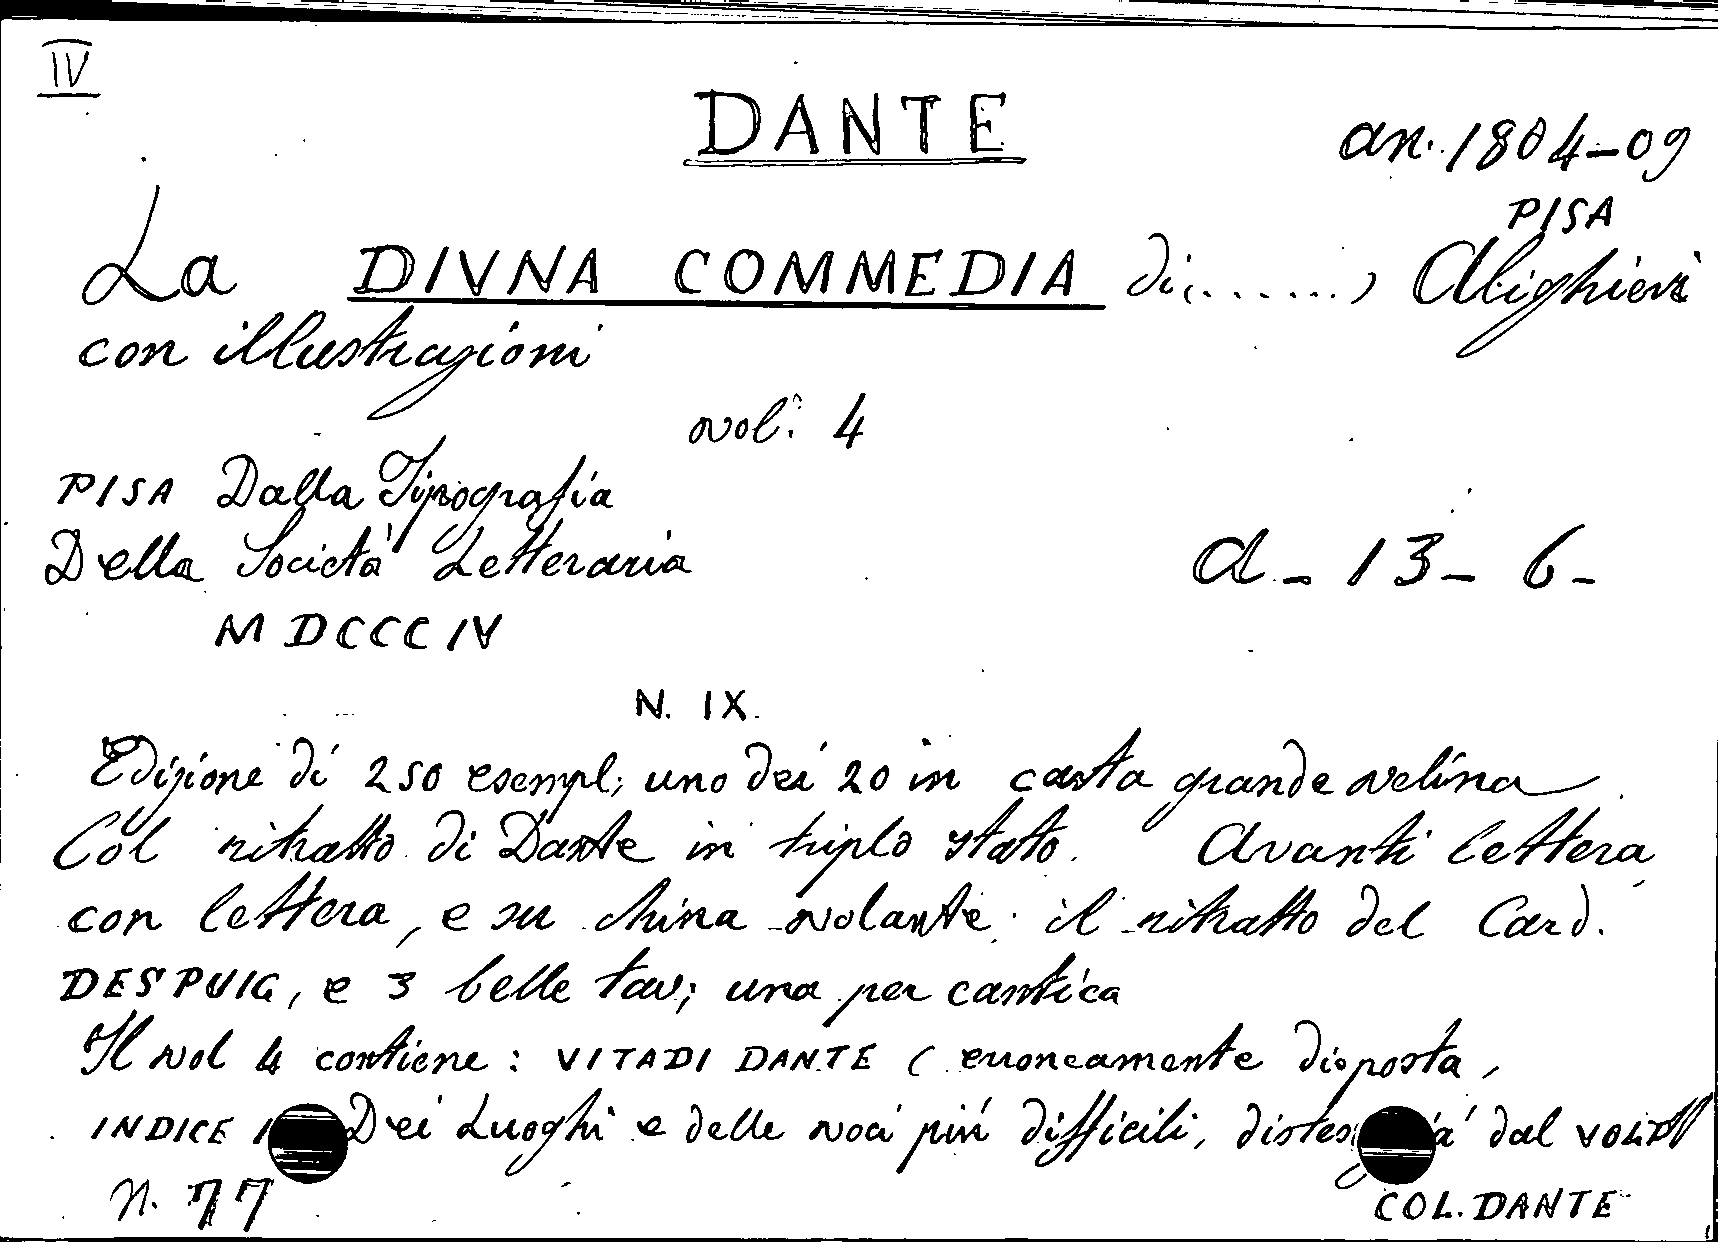 IV
DANTE
an. 1804-09
PISA
La DIVNA COMMEDIA di (......) Alighieri
con illustrazioni
vol: 4
PISA Dalla Tipografia
Della Società Letteraria
A - 13 - 6 -
MDCCCIV
N. IX.
Edizione di 250 esempl; uno dei 20 in carta grande velina
Col ritratto di Dante in triplo stato. Avanti lettera,
con lettera, e su china volante: il ritratto del Card.
DESPUIG, e 3 belle tav; una per cantica
Il vol 4 contiene: VITA DI DANTE (erroneamente disposta,
INDICE Dei Luoghi e delle voci più difficili, dal VOLPI
N. 77
COL. DANTE